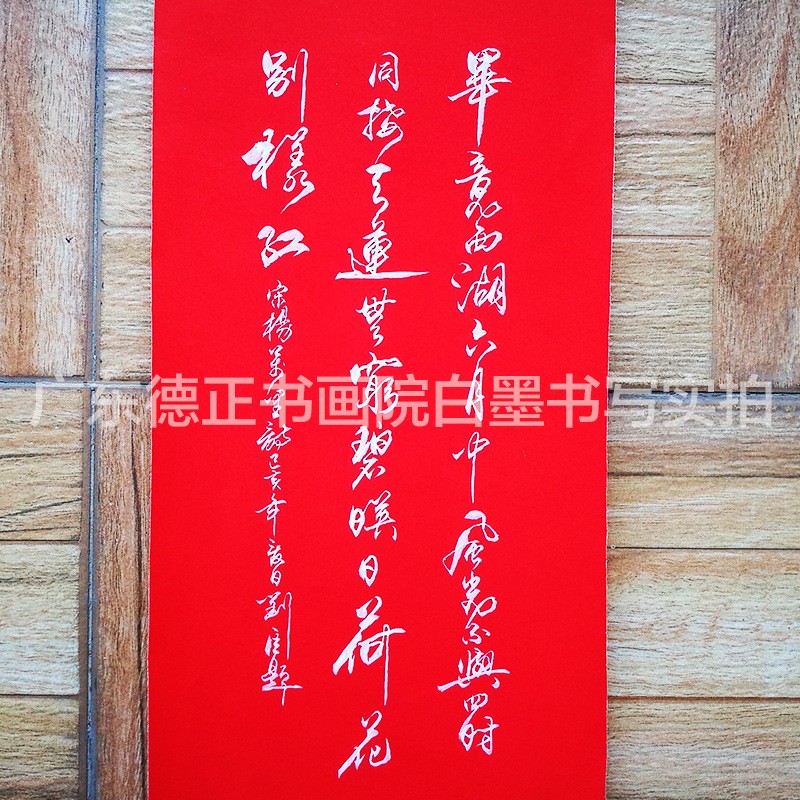 畢竟西湖六月中風光不與四時
同接天蓮無窮碧暎日荷花
別樣紅
宋楊萬里詩己亥年日劉題
广东德正书画院白墨书写实拍